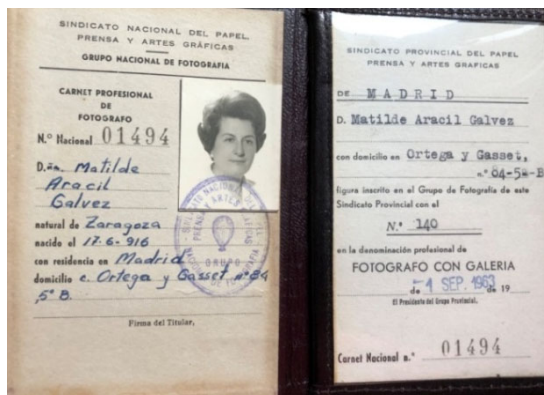 SINDICATO NACIONAL DEL PAPEL
PRENSA Y ARTES GRÁFICAS
GRUPO NACIONAL DE FOTOGRAFIA
CARNET PROFESIONAL
DE
FOTOGRAFO
N.º Nacional 01494
D.ña. Matilde
Aracil
Galvez
natural de Zaragoza
nacido el 17-6-916
con residencia en Madrid
domicilio c. Ortega y Gasset, nº 84
5º B.
Firma del Titular,
GRUPO
SINDICATO PROVINCIAL DEL PAPEL
PRENSA Y ARTES GRAFICAS
DE MADRID
D. Matilde Aracil Galvez
con domicilio en Ortega y Gasset,
n.º 84-5º-B
figura inscrito en el Grupo de Fotografia de este
Sindicato Provincial con el
N.º 140
en la denominación profesional de
FOTOGRAFO CON GALERIA
de -1 SEP. 1963 de 19
El Presidente del Grupo Provincial,
Carnet Nacional n.º 01494